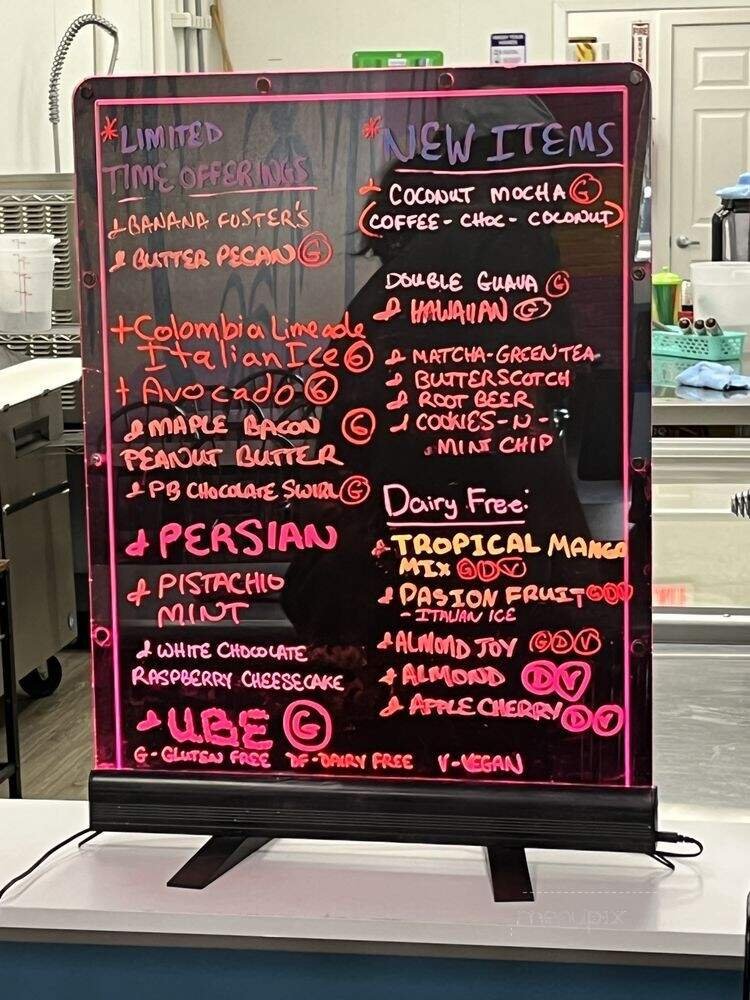 *LIMITED
TIME OFFERINGS
BANANA FUSTER'S
BUTTER PECAN G
+Colombia Limeade
Italian Ice G
+ Avocado G
MAPLE BACON G
PEANUT BUTTER
PB CHOCOLATE SWIRL G
PERSIAN
PISTACHIO
MINT
WHITE CHOCOLATE
RASPBERRY CHEESECAKE
UBE G
*NEW ITEMS
COCONUT MOCHA G
(COFFEE - CHOC - COCONUT)
DOUBLE GUAVA G
HAWAIIAN G
MATCHA-GREEN TEA
BUTTERSCOTCH
ROOT BEER
COOKIES-N-
MINT CHIP
Dairy Free:
TROPICAL MANGO
MIX G D V
PASION FRUIT G D V
- ITALIAN ICE
ALMOND JOY G D V
ALMOND D V
APPLE CHERRY D V
G-GLUTEN FREE DF-DAIRY FREE V-VEGAN
FIRE
menupix